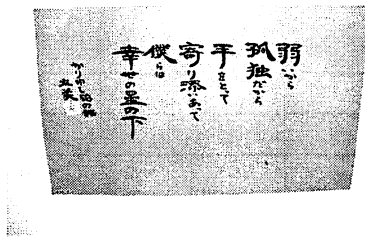 弱いから
孤独だから
手をとって
寄り添いあって
僕らは
幸せの星の下